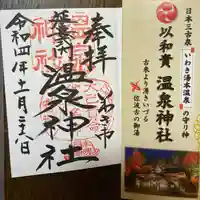 奉拝
いわき市
延喜式内
温泉神社
令和四年十一月二十八日
日本三古泉
「いわき湯本温泉」の守り神
以和貴 温泉神社
古来より湧きいづる
佐波古の御湯